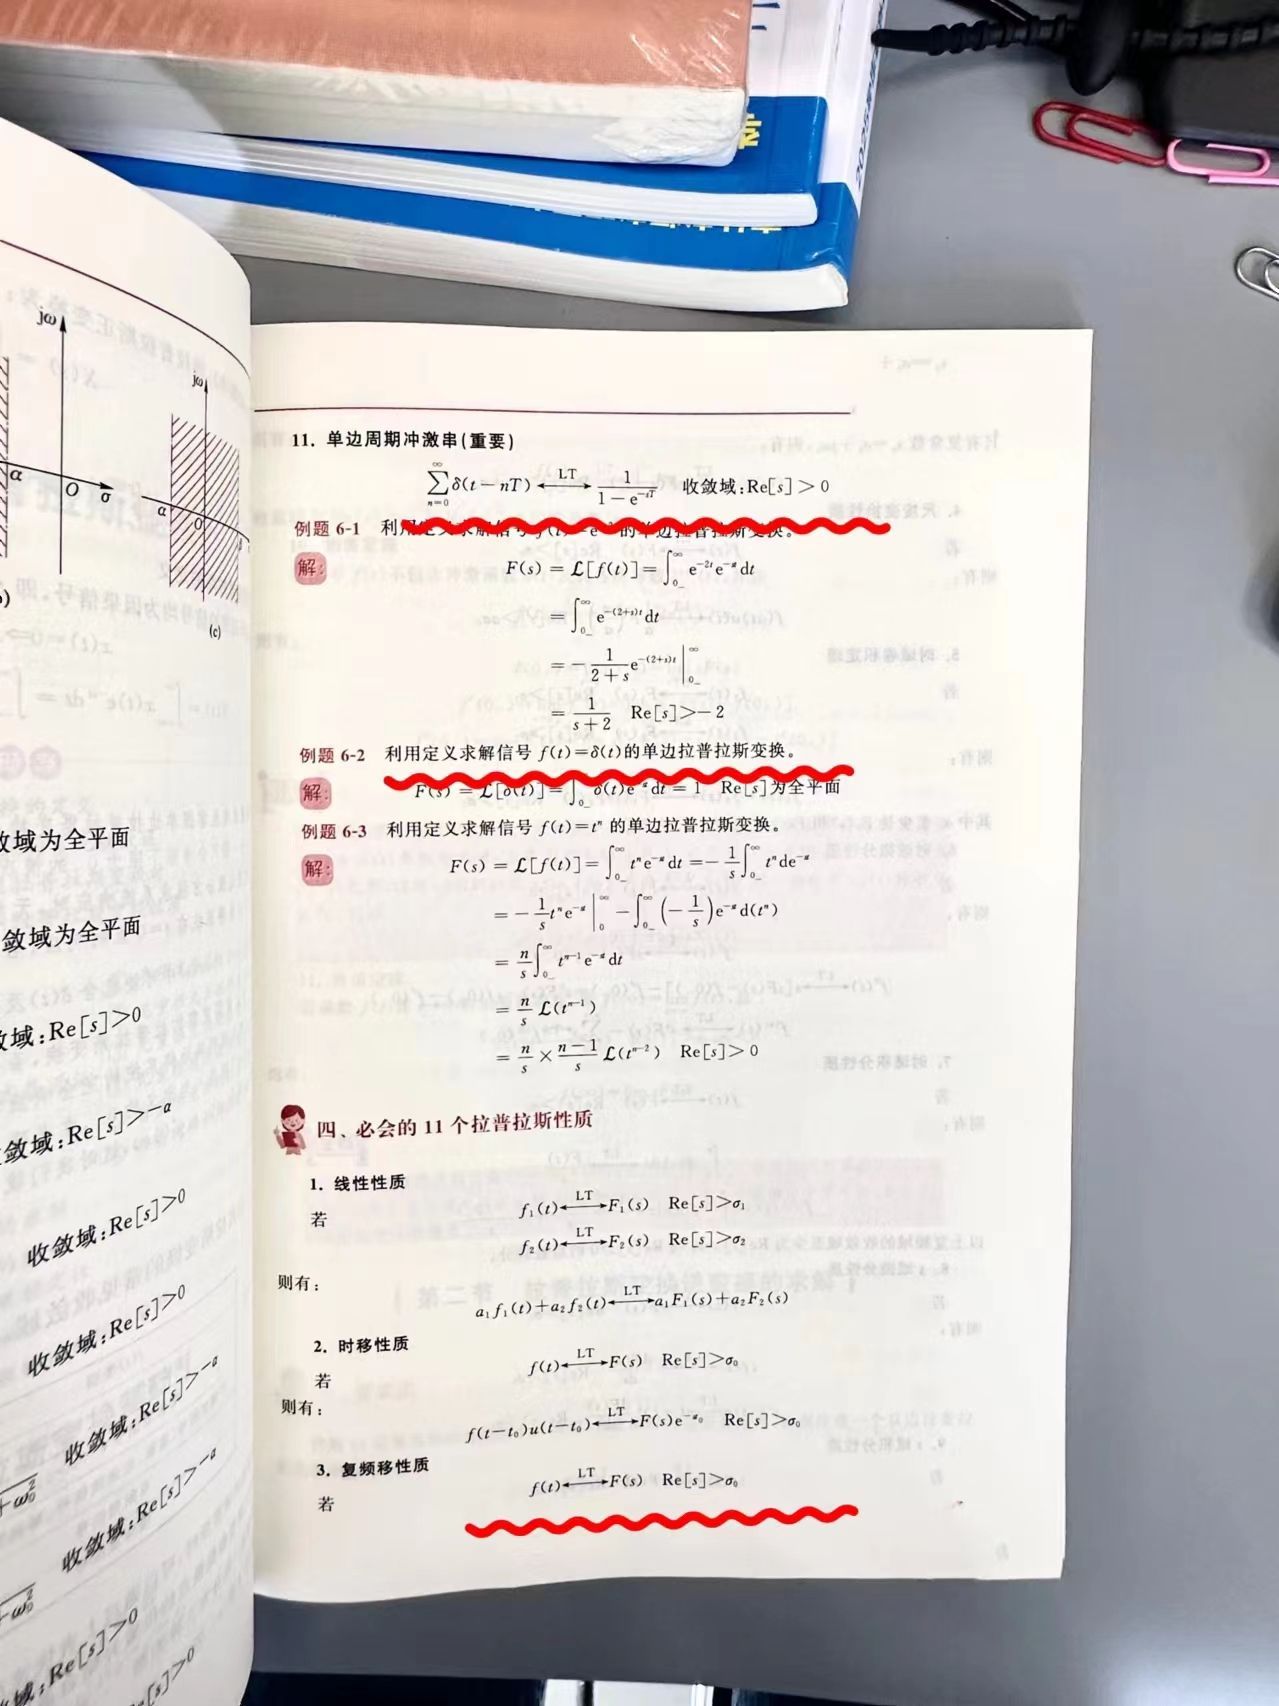 jω
α
O
σ
jω
α
O
(c)
敛域为全平面
收敛域:Re[s]>0
收敛域:Re[s]>0
收敛域:Re[s]>-α
收敛域:Re[s]>-α
11. 单边周期冲激串(重要)
∑_{n=0}^{∞} δ(t-nT) ⟷^{LT} 1/(1-e^{-sT}) 收敛域:Re[s]>0
例题 6-1 利用定义求解信号 的单边拉普拉斯变换。
解: F(s)=ℒ[f(t)]=∫_{0_}^{∞} e^{-2t}e^{-st}dt
=∫_{0_}^{∞} e^{-(2+s)t}dt
=-1/(2+s) e^{-(2+s)t}|_{0_}^{∞}
=1/(s+2) Re[s]>-2
例题 6-2 利用定义求解信号 f(t)=δ(t)的单边拉普拉斯变换。
解: F(s)=ℒ[δ(t)]=∫_{0_} δ(t)e^{-st}dt=1 Re[s]为全平面
例题 6-3 利用定义求解信号 f(t)=t^n 的单边拉普拉斯变换。
解: F(s)=ℒ[f(t)]=∫_{0_}^{∞} t^n e^{-st}dt=-1/s ∫_{0_}^{∞} t^n de^{-st}
=-1/s t^n e^{-st}|_{0}^{∞}-∫_{0_}^{∞}(-1/s)e^{-st}d(t^n)
=n/s ∫_{0_}^{∞} t^{n-1}e^{-st}dt
=n/s ℒ(t^{n-1})
=n/s×(n-1)/s ℒ(t^{n-2}) Re[s]>0
四、必会的 11 个拉普拉斯性质
1. 线性性质
若 f₁(t) ⟷^{LT} F₁(s) Re[s]>σ₁
f₂(t) ⟷^{LT} F₂(s) Re[s]>σ₂
则有:
a₁f₁(t)+a₂f₂(t) ⟷^{LT} a₁F₁(s)+a₂F₂(s)
2. 时移性质
若 f(t) ⟷^{LT} F(s) Re[s]>σ₀
则有:
f(t-t₀)u(t-t₀) ⟷^{LT} F(s)e^{-st₀} Re[s]>σ₀
3. 复频移性质
若 f(t) ⟷^{LT} F(s) Re[s]>σ₀